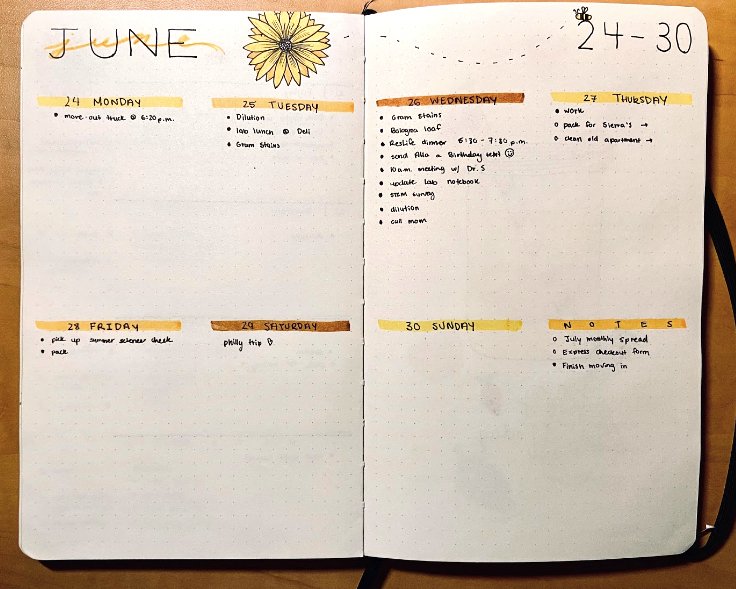 JUNE
june
24 - 30
24 MONDAY
• move-out truck @ 6:20 p.m.
25 TUESDAY
• Dilution
• lab lunch @ Deli
• Gram Stains
26 WEDNESDAY
• Gram Stains
• Balagna loaf
• Reslife dinner 5:30 - 7:30 p.m.
• send Alla a Birthday text ☺
• 10 a.m. meeting w/ Dr. S
• update lab notebook
• STEM survey
• dilution
• call mom
27 THURSDAY
• work
o pack for Sierra's →
o clean old apartment →
28 FRIDAY
• pick up summer science check
• pack
29 SATURDAY
philly trip
30 SUNDAY
NOTES
o July monthly spread
o Express checkout form
• Finish moving in